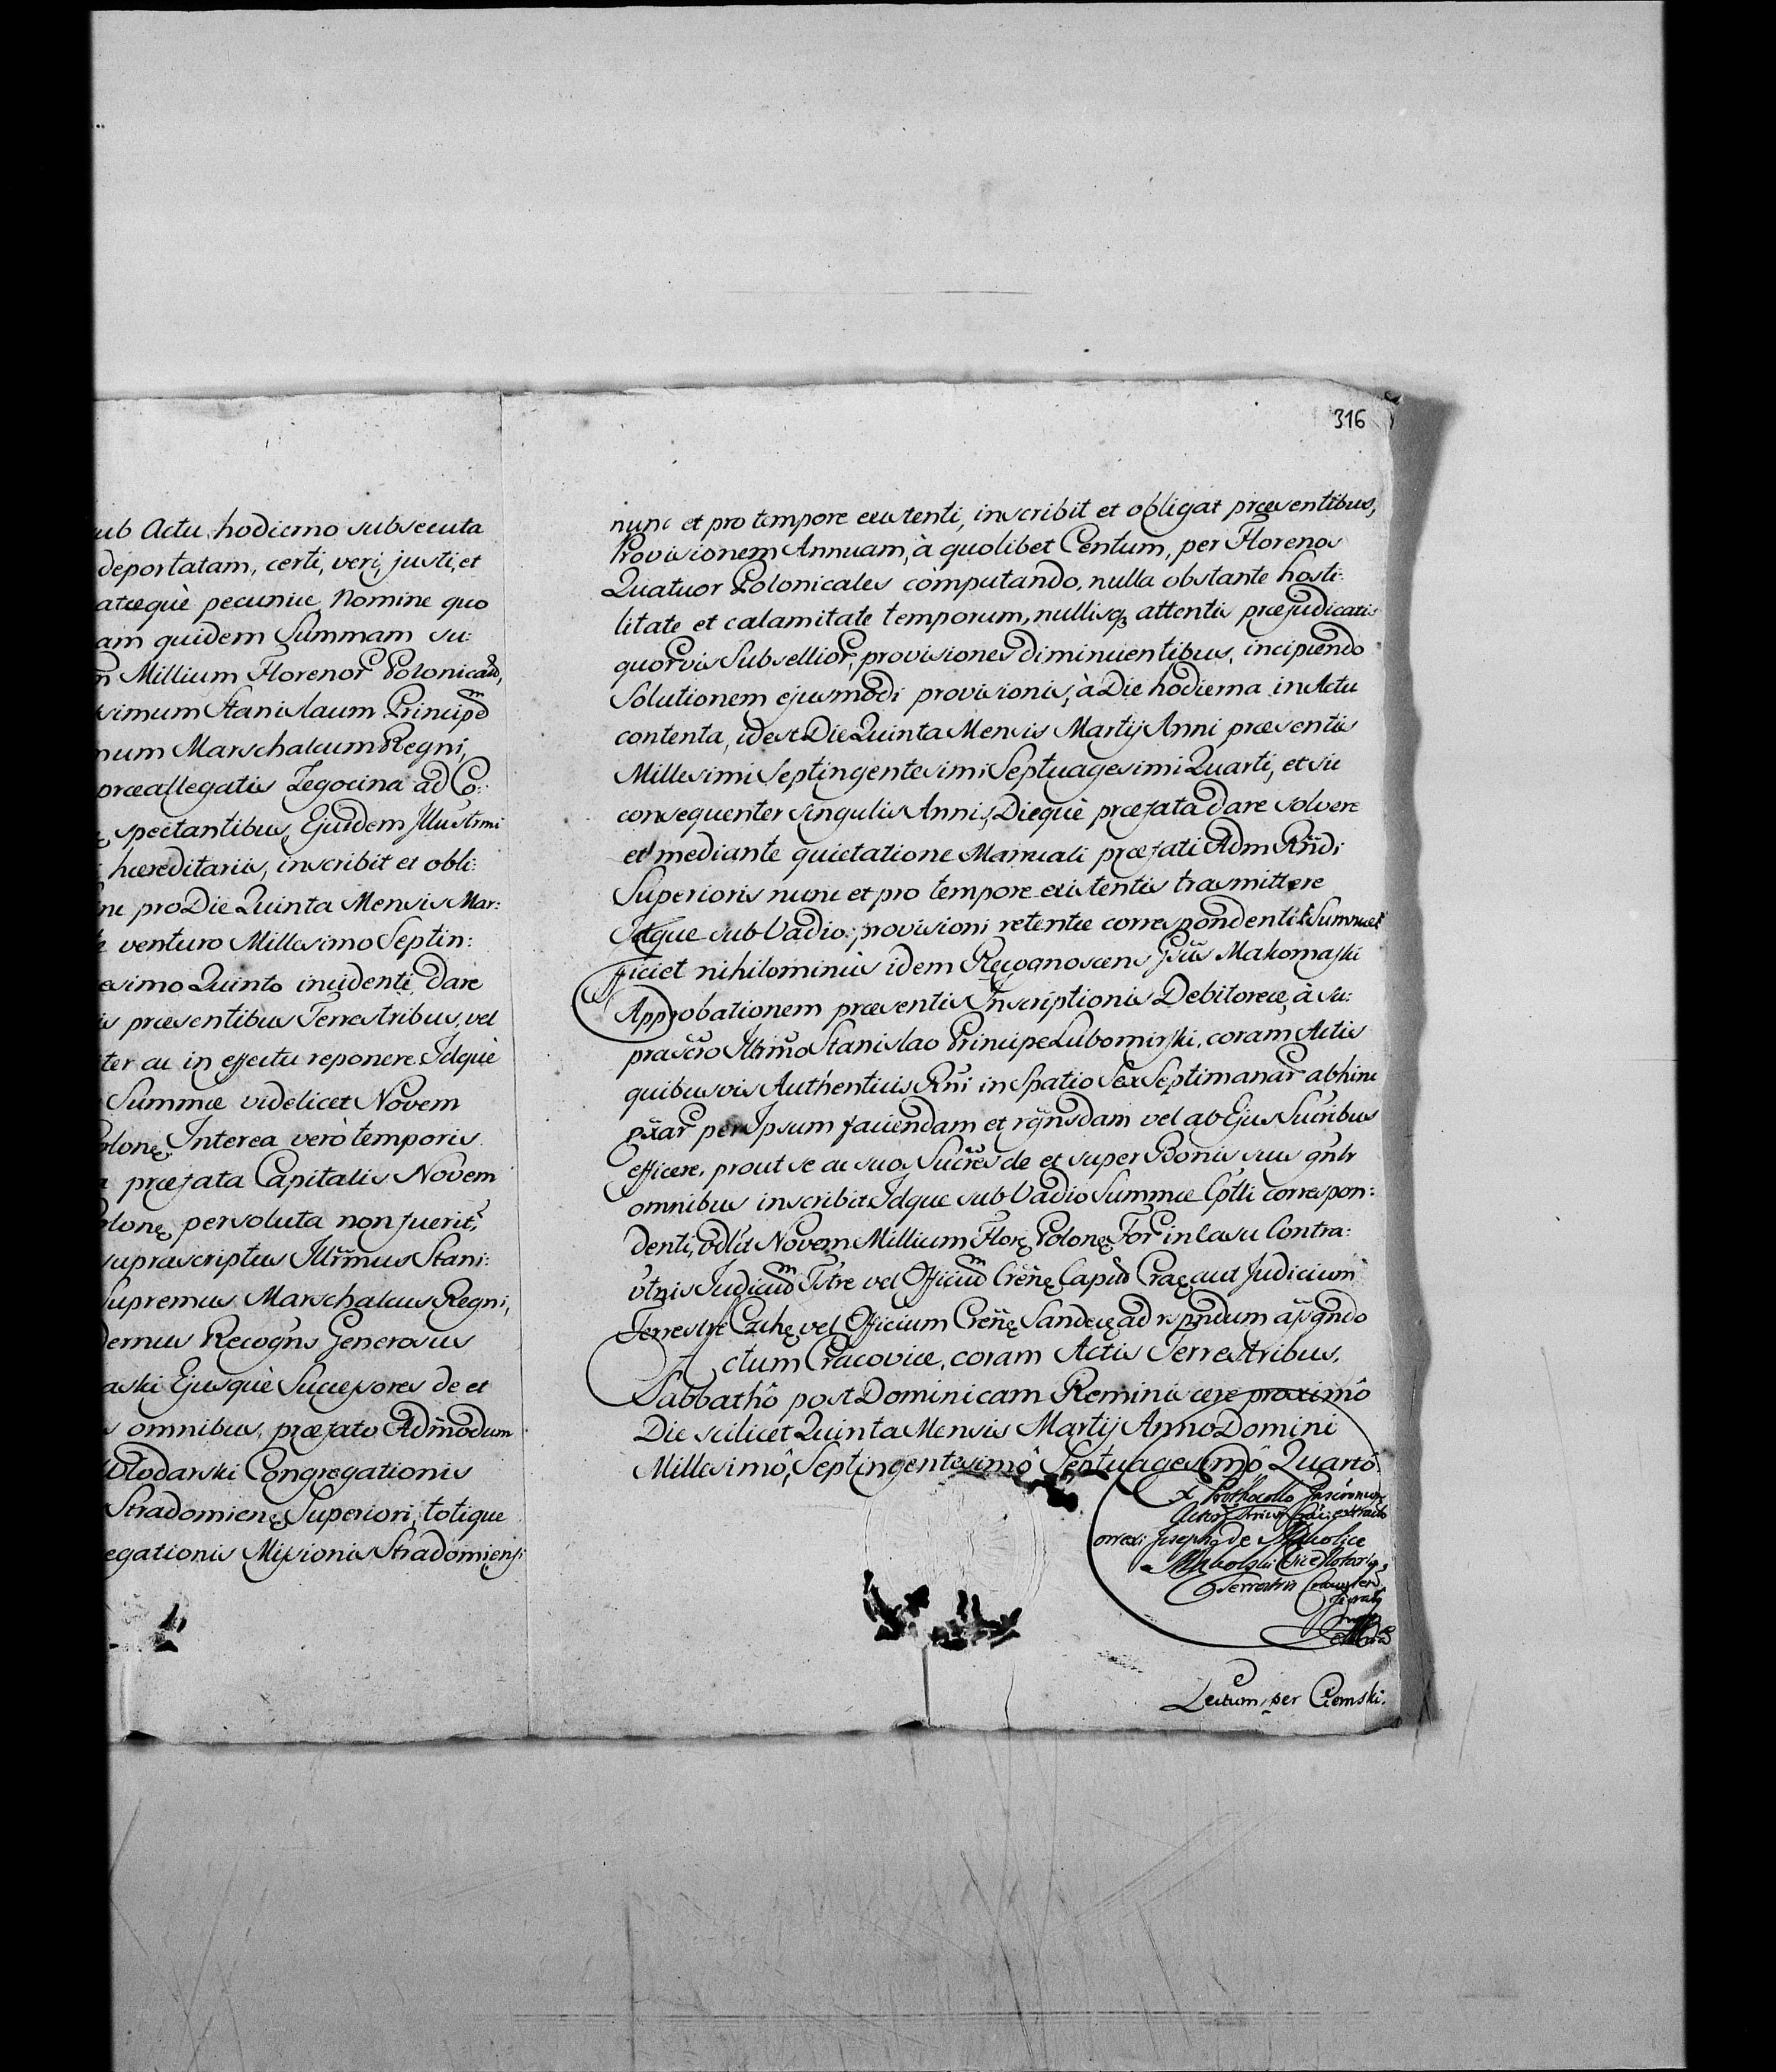 ub Actu hodierno subsecuta
deportatam, certi, veri, justi, et
atæquè pecuniæ Nomine quo
am quidem Summam su:
Millium Florenor Polonicald,
simum Stanislaum Principem
num Marschalcum Regni,
præallegatis Zegocina ad Co:
spectantibus, Ejusdem Illustrmi
hæreditariis, inscribit et obli:
pro Die Quinta Mensis Mar:
venturo Millesimo Septin:
esimo Quinto incidenti, dare
is præsentibus Terrestribus, vel
ter ac in effectu reponere. Idquè
Summæ videlicet Novem
olonę Interea verò temporis
præfata Capitalis Novem
olonę persoluta non fuerit,
suprascriptus Illrmus Stani:
Supremus Marschalcus Regni,
dernus Recogns Generosus
aski Ejusquè Successores de et
omnibus, præfato Admodum
Wlodarski Congregationis
Stradomienę Superiori, totique
egationis Missionis Stradomiensi
316
nunc et pro tempore existenti, inscribit et obligat præsentibus,
Provisionem Annuam, à quolibet Centum, per Florenos
Quatuor Polonicales computando, nulla obstante hosti:
litate et calamitate temporum, nullisq3 attentis præjudicatis
quorvis Subsellior, provisiones diminuentibus, incipiendo
Solutionem ejusmodi provisionis, à Die hodierna in Actu
contenta, idest Die Quinta Mensis Martij Anni præsentis
Millesimi Septingentesimi Septuagesimi Quarti, et sic
consequenter singulis Annis, Diequè præfata dare solvere
et mediante quietatione Manuali præfati Adm Rndi
Superioris nunc et pro tempore existentis trasmittere
Idque sub Vadio, provisioni retentæ correspondenti Summæ
fficiet nihilominùs idem Recognoscens Gsus Makomaski
Approbationem præsentis Inscriptionis Debitoreæ, à su:
prascro Illrmo Stanislao Principe Lubomirski, coram Actis
quibusvis Authenticis Rni in Spatio Sex Septimanar abhinc
pxar per Ipsum faciendam et rgnsdam vel ab Ejus Sucribus
efficere, prout se ac suos Sucres de et super Bonis suis gnlr
omnibus inscribit Idque sub Vadio Summæ Cptli correspon:
denti, vdlct Novem Millium Florę Polonę For in Casu Contra:
vtnis Judicium Tstre vel Officium Crenę Capud Craę aut Judicium
Terrestre Czchę vel Officium Crenę Sandecę ad rspndum assgndo
Actum Cracoviæ, coram Actis Terrestribus,
Sabbathô post Dominicam Reminiscere proximô
Die scilicet Quinta Mensis Martij Anno Domini
Millesimô, Septingentesimô Septuagesimô Quartô.
x Prothocollo
orrexi Josephq de
Vice Notariq
Terrestris
Lectum per Ciemski.